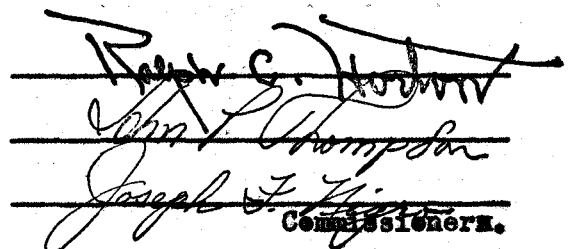 Ralph C. Horton
John P. Thompson
Joseph F.
Commissioners.